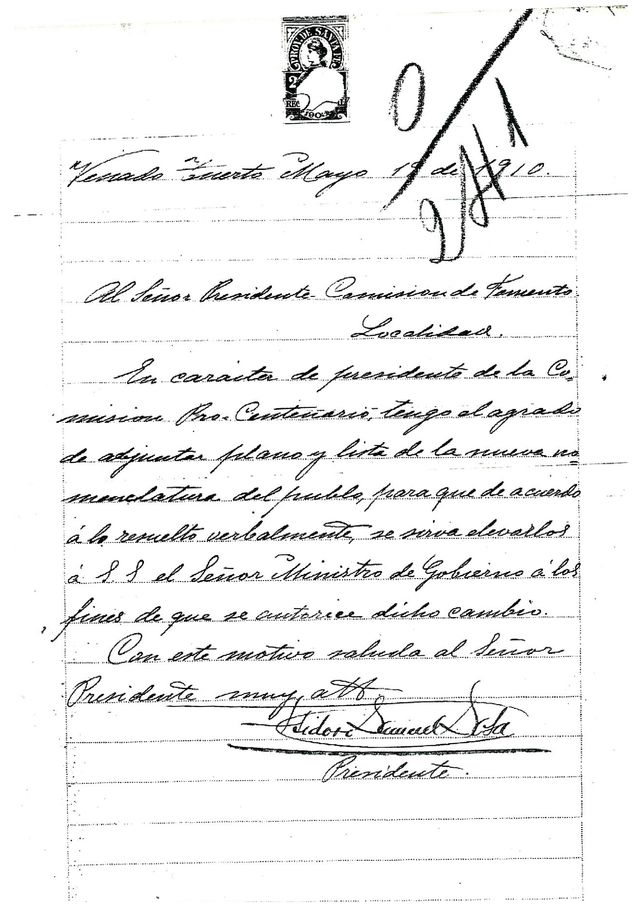 PROV. DE SANTA FE
2
190
0
2411
Venado Tuerto Mayo 19 de 1910.
Al Señor Presidente Comision de Fomento
Localidad.
En caracter de presidente de la Co-
mision Pro-Centenario, tengo el agrado
de adjuntar plano y lista de la nueva no
menclatura del pueblo, para que de acuerdo
á lo resuelto verbalmente, se sirva elevarlos
á S. S el Señor Ministro de Gobierno á los
fines de que se autorice dicho cambio.
Con este motivo saluda al Señor
Presidente muy att
Isidoro Samuel Sosa
Presidente.